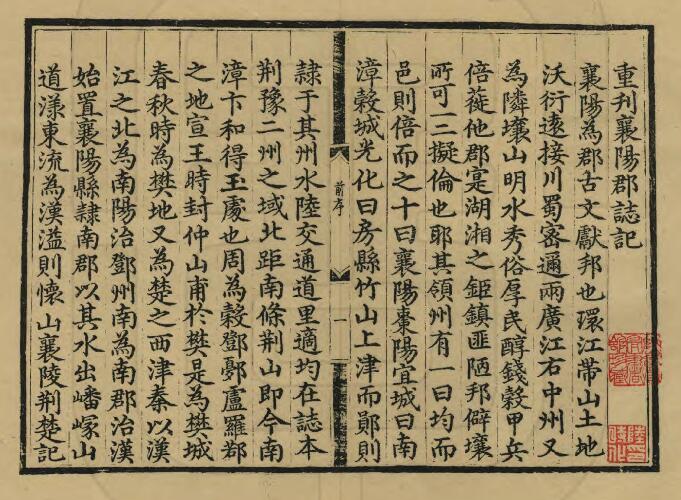 重刋襄陽郡誌記
襄陽為郡古文獻邦也環江帶山土地
沃衍遠接川蜀密邇兩廣江右中州又
為隣壤山明水秀俗厚民醇錢穀甲兵
倍蓰他郡寔湖湘之鉅鎮匪陋邦僻壤
所可一二擬倫也耶其領州有一曰均而
邑則倍而之十曰襄陽棗陽宜城曰南
漳穀城光化曰房縣竹山上津而鄖則
前序
一
隷于其州水陸交通道里適均在誌本
荆豫二州之域北距南條荆山即今南
漳卞和得玉處也周為穀鄧鄾盧羅鄀
之地宣王時封仲山甫於樊是為樊城
春秋時為樊地又為楚之西津秦以漢
江之北為南陽治鄧州南為南郡治漢
始置襄陽縣隷南郡以其水出嶓嶓山
道漾東流為漢溢則懷山襄陵荆楚記